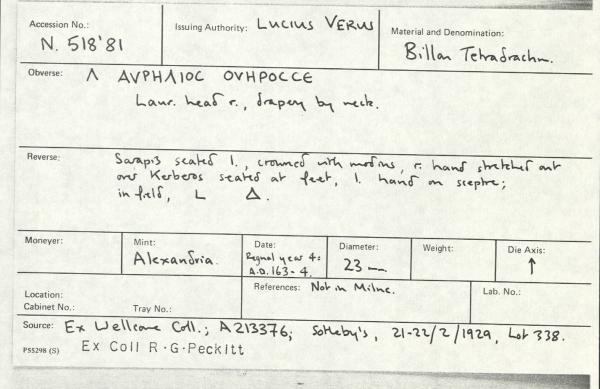 Accession No.:
N. 518'81
Issuing Authority: LUCIUS VERUS
Material and Denomination:
Billon Tetradrachm.
Obverse: Λ ΑVΡΗΛΙΟC ΟVΗΡΟCCΕ
Laur. head r., drapery by neck.
Reverse: Sarapis seated l., crowned with modius, r. hand stretched out
over Kerberos seated at feet, l. hand on sceptre;
in field, L Δ.
Moneyer:
Mint:
Alexandria.
Date:
Regnal year 4:
A.D. 163-4.
Diameter:
23 mm.
Weight:
Die Axis:
↑
Location:
Cabinet No.: Tray No.:
References: Not in Milne.
Lab. No.:
Source: Ex Wellcome Coll.; A213376; Sotheby's, 21-22/2/1929, Lot 338.
P55298 (S) Ex Coll R.G.Peckitt